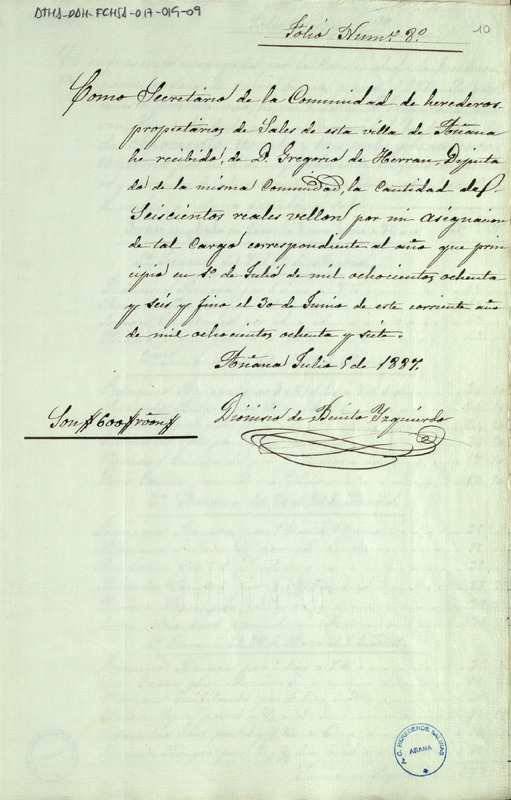 DTHS-DDH-FCHSA-017-019-09
Folio Num.º 8.º
10
Como Secretario de la Comunidad de herederos
propietarios de Sales de esta villa de Añana
he recibido, de D. Gregorio de Herran, Diputa
do de la misma Comunidad, la cantidad de
Seiscientos reales vellon por mi asignacion
de tal cargo correspondiente al año que prin
cipió en 1.º de Julio de mil ochocientos ochenta
y seis y finó el 30 de Junio de este corriente año
de mil ochocientos ochenta y siete.
Añana Julio 5 de 1887.
Son 600 rs vn
Dionisio de Benito Yzquierdo
HEREDEROS SALINAS
AÑANA